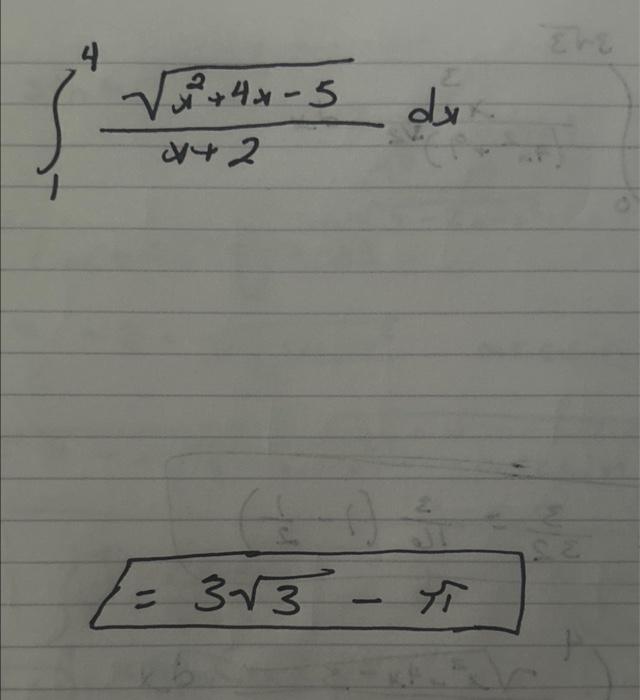 ∫₁⁴ √(x²+4x-5) / (x+2) dx
= 3√3 - π